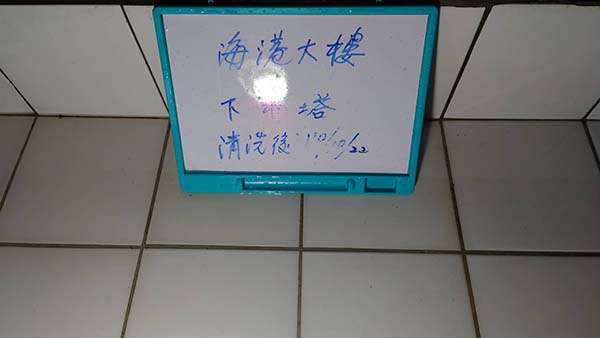 海港大樓
下水塔
清洗後 110/10/22